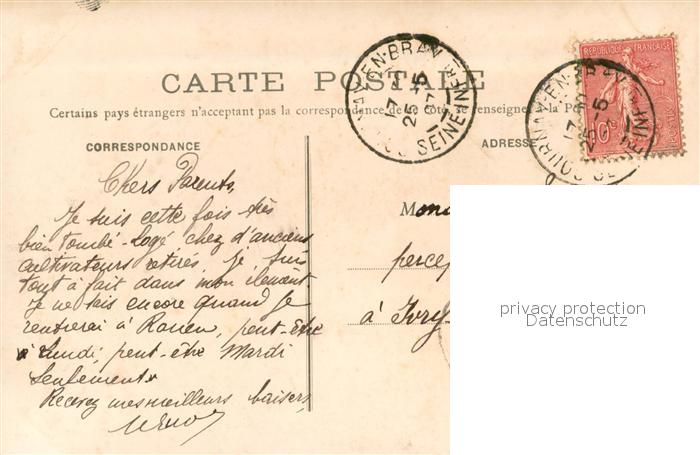 CARTE POSTALE
Certains pays étrangers n'acceptant pas la correspondance de ce côté, se renseigner à la P
CORRESPONDANCE
ADRESSE
RÉPUBLIQUE FRANÇAISE
10c
17 30
25 - 5
SEINE INF
Chers Parents,
Je suis cette fois très
bien tombé - Logé chez d'anciens
cultivateurs retirés. Je suis
tout à fait dans mon élement.
Je ne sais encore quand je
rentrerai à Rouen, peut-être
à Lundi, peut-être Mardi
seulement.
Recevez mes meilleurs baisers,
Mon
perce
à Ivry
privacy protection
Datenschutz